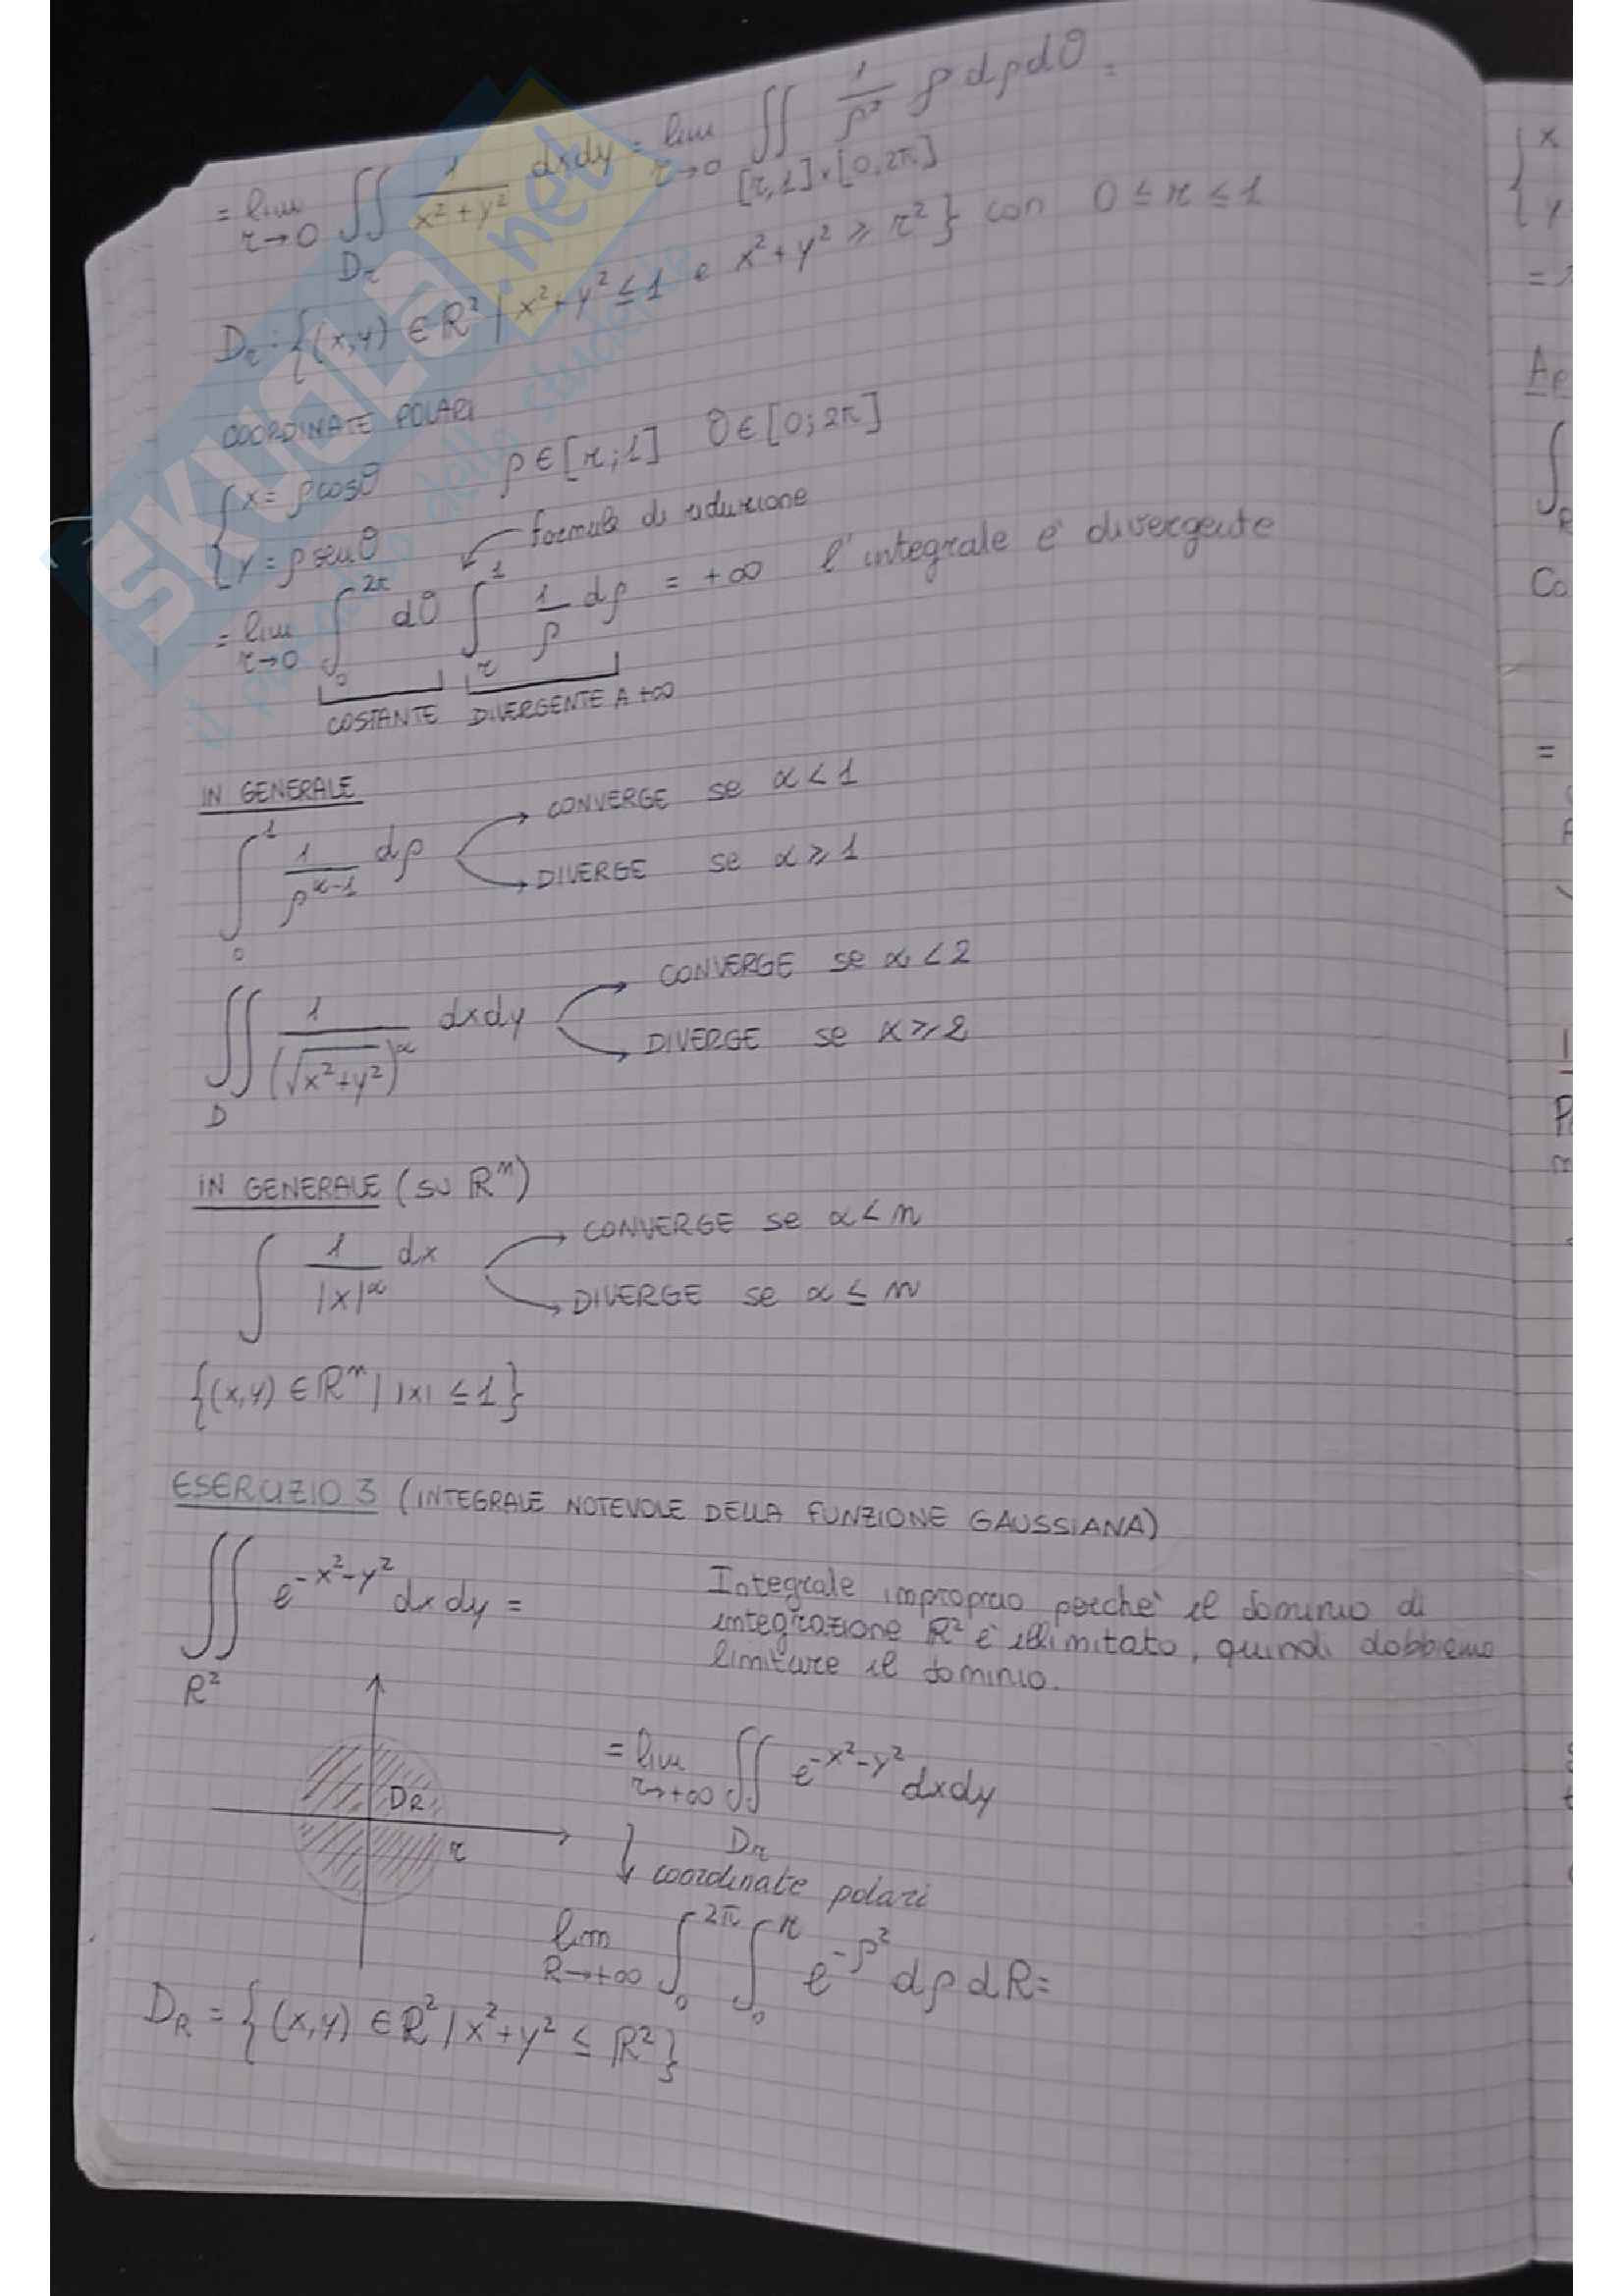 = lim r→0 ∬ Dr 1/(x²+y²) dxdy = lim r→0 ∬ [r,1]×[0,2π] 1/ρ² ρ dρdθ =
Dr: {(x,y) ∈ R² | x²+y² ≤ 1 e x²+y² ≥ r²} con 0 ≤ r ≤ 1
COORDINATE POLARI
{ x = ρcosθ ρ ∈ [r;1] θ ∈ [0;2π]
{ y = ρ senθ formula di riduzione
= lim r→0 ∫₀^2π dθ ∫_r^1 1/ρ dρ = +∞ l'integrale è divergente
COSTANTE DIVERGENTE A +∞
IN GENERALE
CONVERGE se α < 1
∫₀^1 1/ρ^(α-1) dρ
DIVERGE se α ≥ 1
CONVERGE se α < 2
∬ D 1/(√(x²+y²))^α dxdy
DIVERGE se α ≥ 2
IN GENERALE (SU Rⁿ)
CONVERGE se α < n
∫ 1/|x|^α dx
DIVERGE se α ≤ n
{(x,y) ∈ Rⁿ | |x| ≤ 1}
ESERCIZIO 3 (INTEGRALE NOTEVOLE DELLA FUNZIONE GAUSSIANA)
∬ R² e^(-x²-y²) dxdy =
Integrale improprio perchè il dominio di
integrazione R² è illimitato, quindi dobbiamo
limitare il dominio.
= lim r→+∞ ∬ Dr e^(-x²-y²) dxdy
DR
r
↓ coordinate polari
lim R→+∞ ∫₀^2π ∫₀^r e^(-ρ²) dρ dR =
DR = {(x,y) ∈ R² | x²+y² ≤ R²}
SKUOLA.net
{ x
{ y
=
Co
=